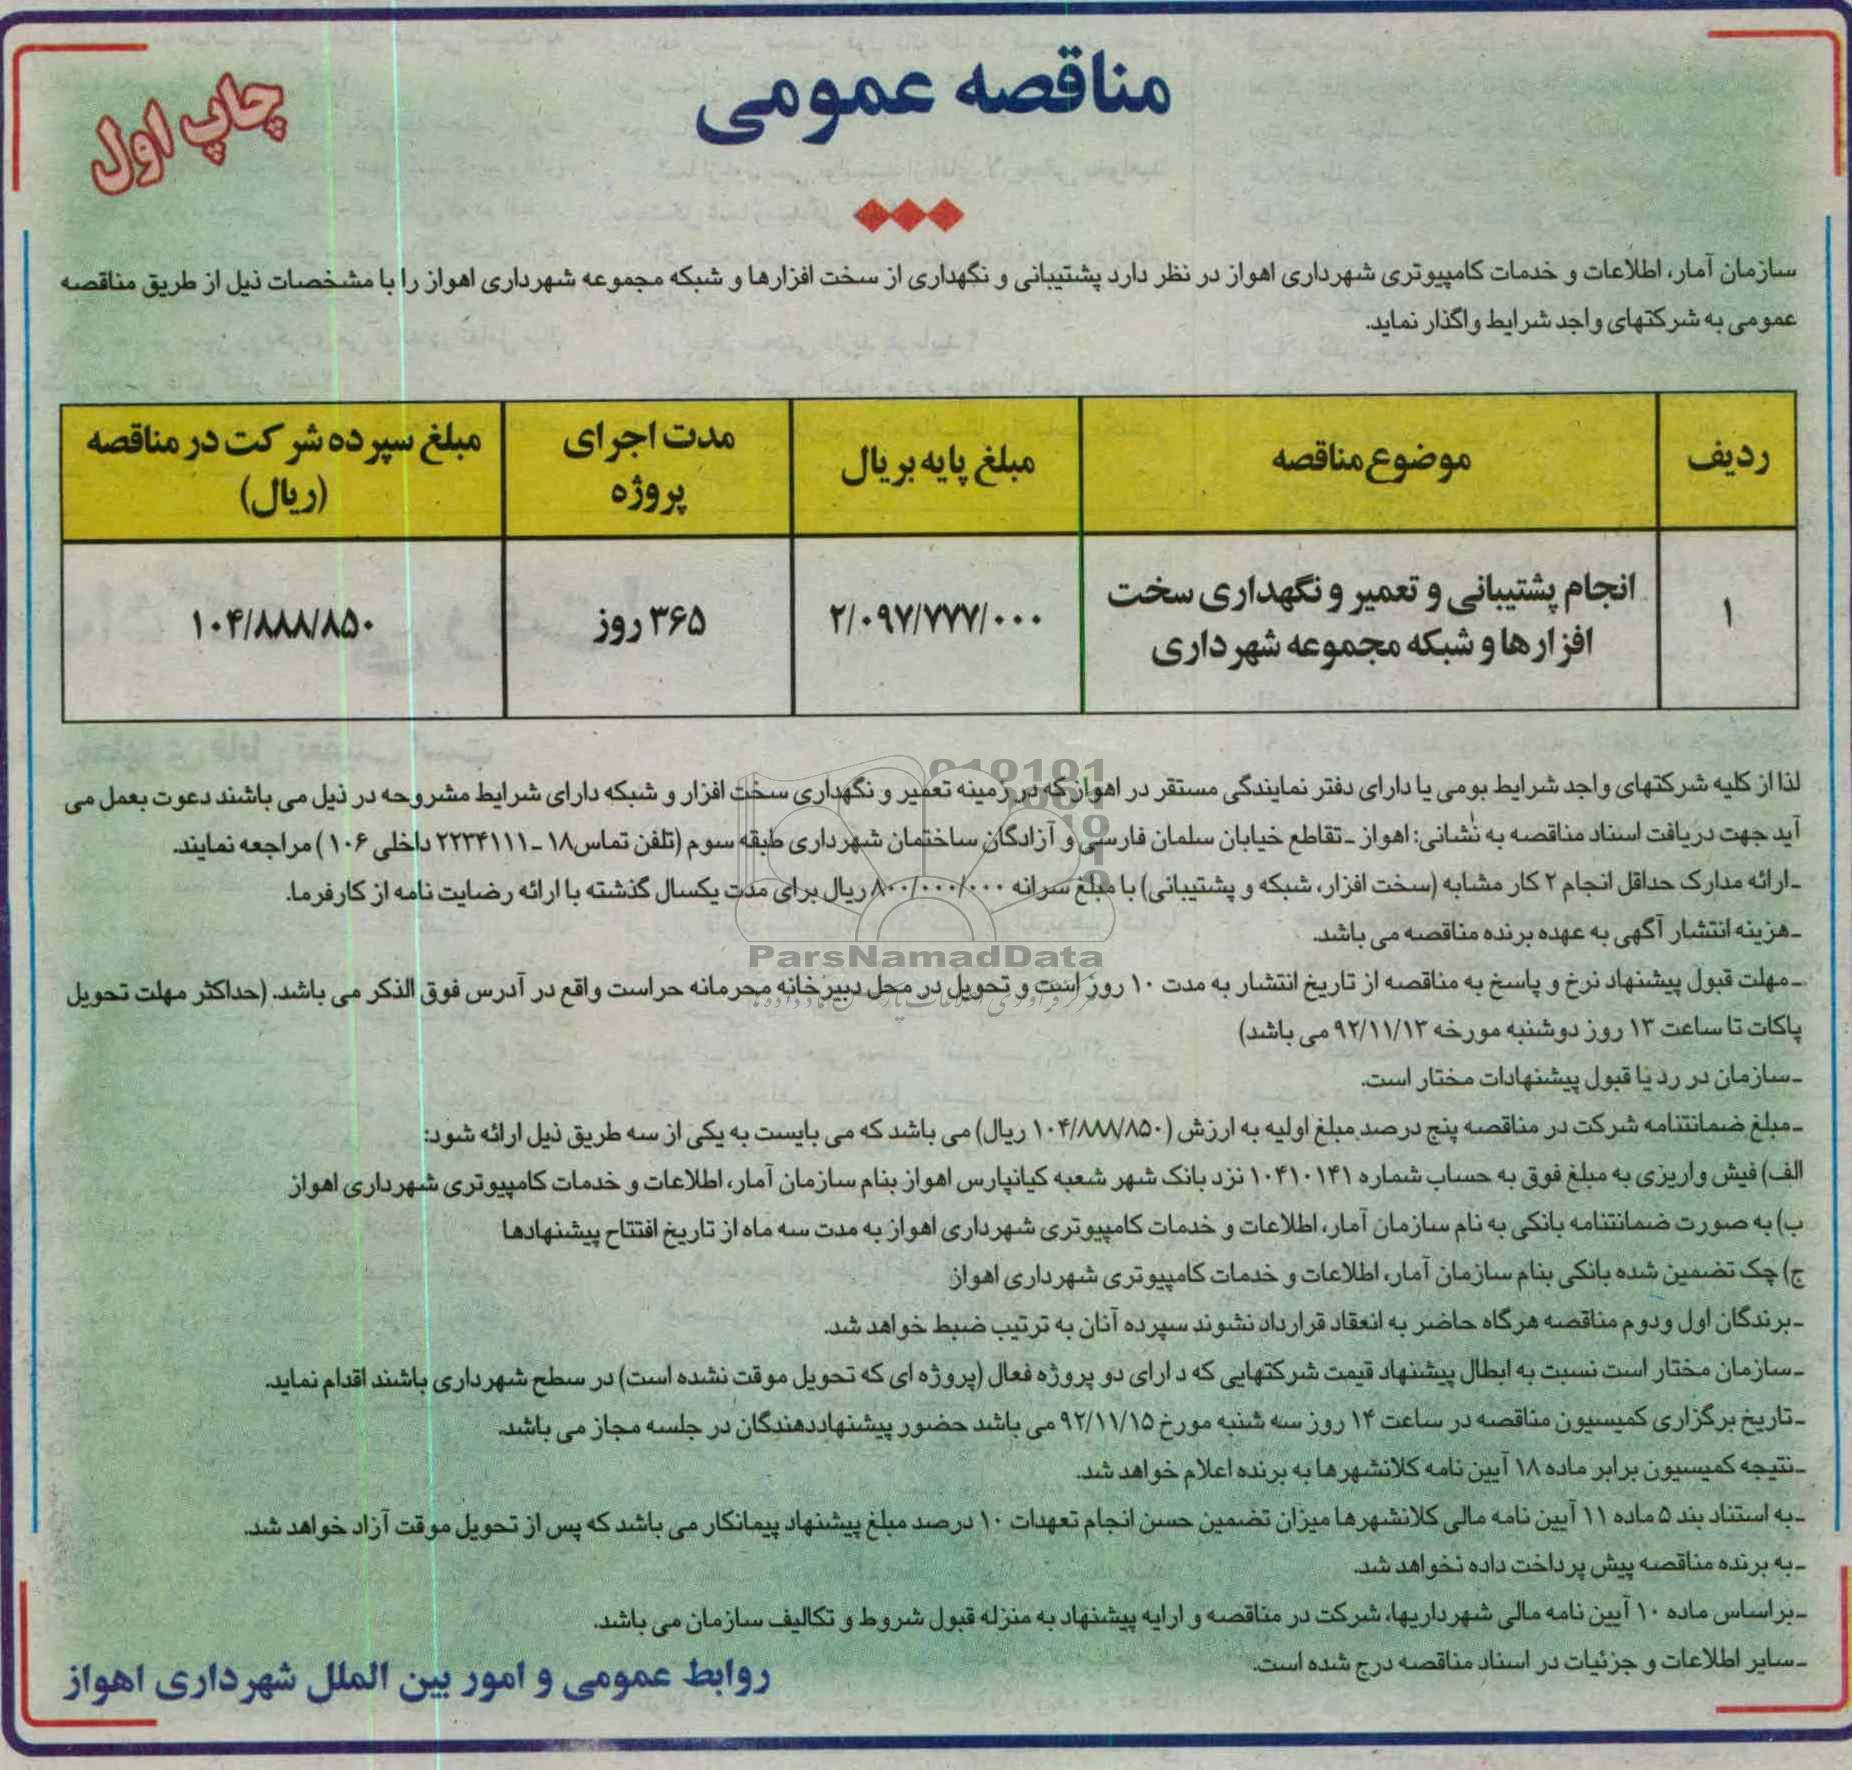 مناقصه عمومی
چاپ اول
سازمان آمار، اطلاعات و خدمات کامپیوتری شهرداری اهواز در نظر دارد پشتیبانی و نگهداری از سخت افزارها و شبکه مجموعه شهرداری اهواز را با مشخصات ذیل از طریق مناقصه
عمومی به شرکتهای واجد شرایط واگذار نماید.
ردیف	موضوع مناقصه	مبلغ پایه بریال	مدت اجرای پروژه	مبلغ سپرده شرکت در مناقصه (ریال)
۱	انجام پشتیبانی و تعمیر و نگهداری سخت افزارها و شبکه مجموعه شهرداری	۲/۰۹۷/۷۷۷/۰۰۰	۳۶۵ روز	۱۰۴/۸۸۸/۸۵۰
لذا از کلیه شرکتهای واجد شرایط بومی یا دارای دفتر نمایندگی مستقر در اهواز که در زمینه تعمیر و نگهداری سخت افزار و شبکه دارای شرایط مشروحه در ذیل می باشند دعوت بعمل می
آید جهت دریافت اسناد مناقصه به نشانی: اهواز ـ تقاطع خیابان سلمان فارسی و آزادگان ساختمان شهرداری طبقه سوم (تلفن تماس۱۸ ـ ۲۲۳۴۱۱۱ داخلی ۱۰۶ ) مراجعه نمایند.
ـ ارائه مدارک حداقل انجام ۲ کار مشابه (سخت افزار، شبکه و پشتیبانی) با مبلغ سرانه ۸۰۰/۰۰۰/۰۰۰ ریال برای مدت یکسال گذشته با ارائه رضایت نامه از کارفرما.
ـ هزینه انتشار آگهی به عهده برنده مناقصه می باشد.
ـ مهلت قبول پیشنهاد نرخ و پاسخ به مناقصه از تاریخ انتشار به مدت ۱۰ روز است و تحویل در محل دبیرخانه محرمانه حراست واقع در آدرس فوق الذکر می باشد. (حداکثر مهلت تحویل
پاکات تا ساعت ۱۳ روز دوشنبه مورخه ۹۲/۱۱/۱۳ می باشد)
ـ سازمان در رد یا قبول پیشنهادات مختار است.
ـ مبلغ ضمانتنامه شرکت در مناقصه پنج درصد مبلغ اولیه به ارزش (۱۰۴/۸۸۸/۸۵۰ ریال) می باشد که می بایست به یکی از سه طریق ذیل ارائه شود:
الف) فیش واریزی به مبلغ فوق به حساب شماره ۱۰۴۱۰۱۴۱ نزد بانک شهر شعبه کیانپارس اهواز بنام سازمان آمار، اطلاعات و خدمات کامپیوتری شهرداری اهواز
ب) به صورت ضمانتنامه بانکی به نام سازمان آمار، اطلاعات و خدمات کامپیوتری شهرداری اهواز به مدت سه ماه از تاریخ افتتاح پیشنهادها
ج) چک تضمین شده بانکی بنام سازمان آمار، اطلاعات و خدمات کامپیوتری شهرداری اهواز
ـ برندگان اول ودوم مناقصه هرگاه حاضر به انعقاد قرارداد نشوند سپرده آنان به ترتیب ضبط خواهد شد.
ـ سازمان مختار است نسبت به ابطال پیشنهاد قیمت شرکتهایی که دارای دو پروژه فعال (پروژه ای که تحویل موقت نشده است) در سطح شهرداری باشند اقدام نماید.
ـ تاریخ برگزاری کمیسیون مناقصه در ساعت ۱۴ روز سه شنبه مورخ ۹۲/۱۱/۱۵ می باشد حضور پیشنهاددهندگان در جلسه مجاز می باشد.
ـ نتیجه کمیسیون برابر ماده ۱۸ آیین نامه کلانشهرها به برنده اعلام خواهد شد.
ـ به استناد بند ۵ ماده ۱۱ آیین نامه مالی کلانشهرها میزان تضمین حسن انجام تعهدات ۱۰ درصد مبلغ پیشنهاد پیمانکار می باشد که پس از تحویل موقت آزاد خواهد شد.
ـ به برنده مناقصه پیش پرداخت داده نخواهد شد.
ـ براساس ماده ۱۰ آیین نامه مالی شهرداریها، شرکت در مناقصه و ارایه پیشنهاد به منزله قبول شروط و تکالیف سازمان می باشد.
ـ سایر اطلاعات و جزئیات در اسناد مناقصه درج شده است.
روابط عمومی و امور بین الملل شهرداری اهواز
ParsNamadData